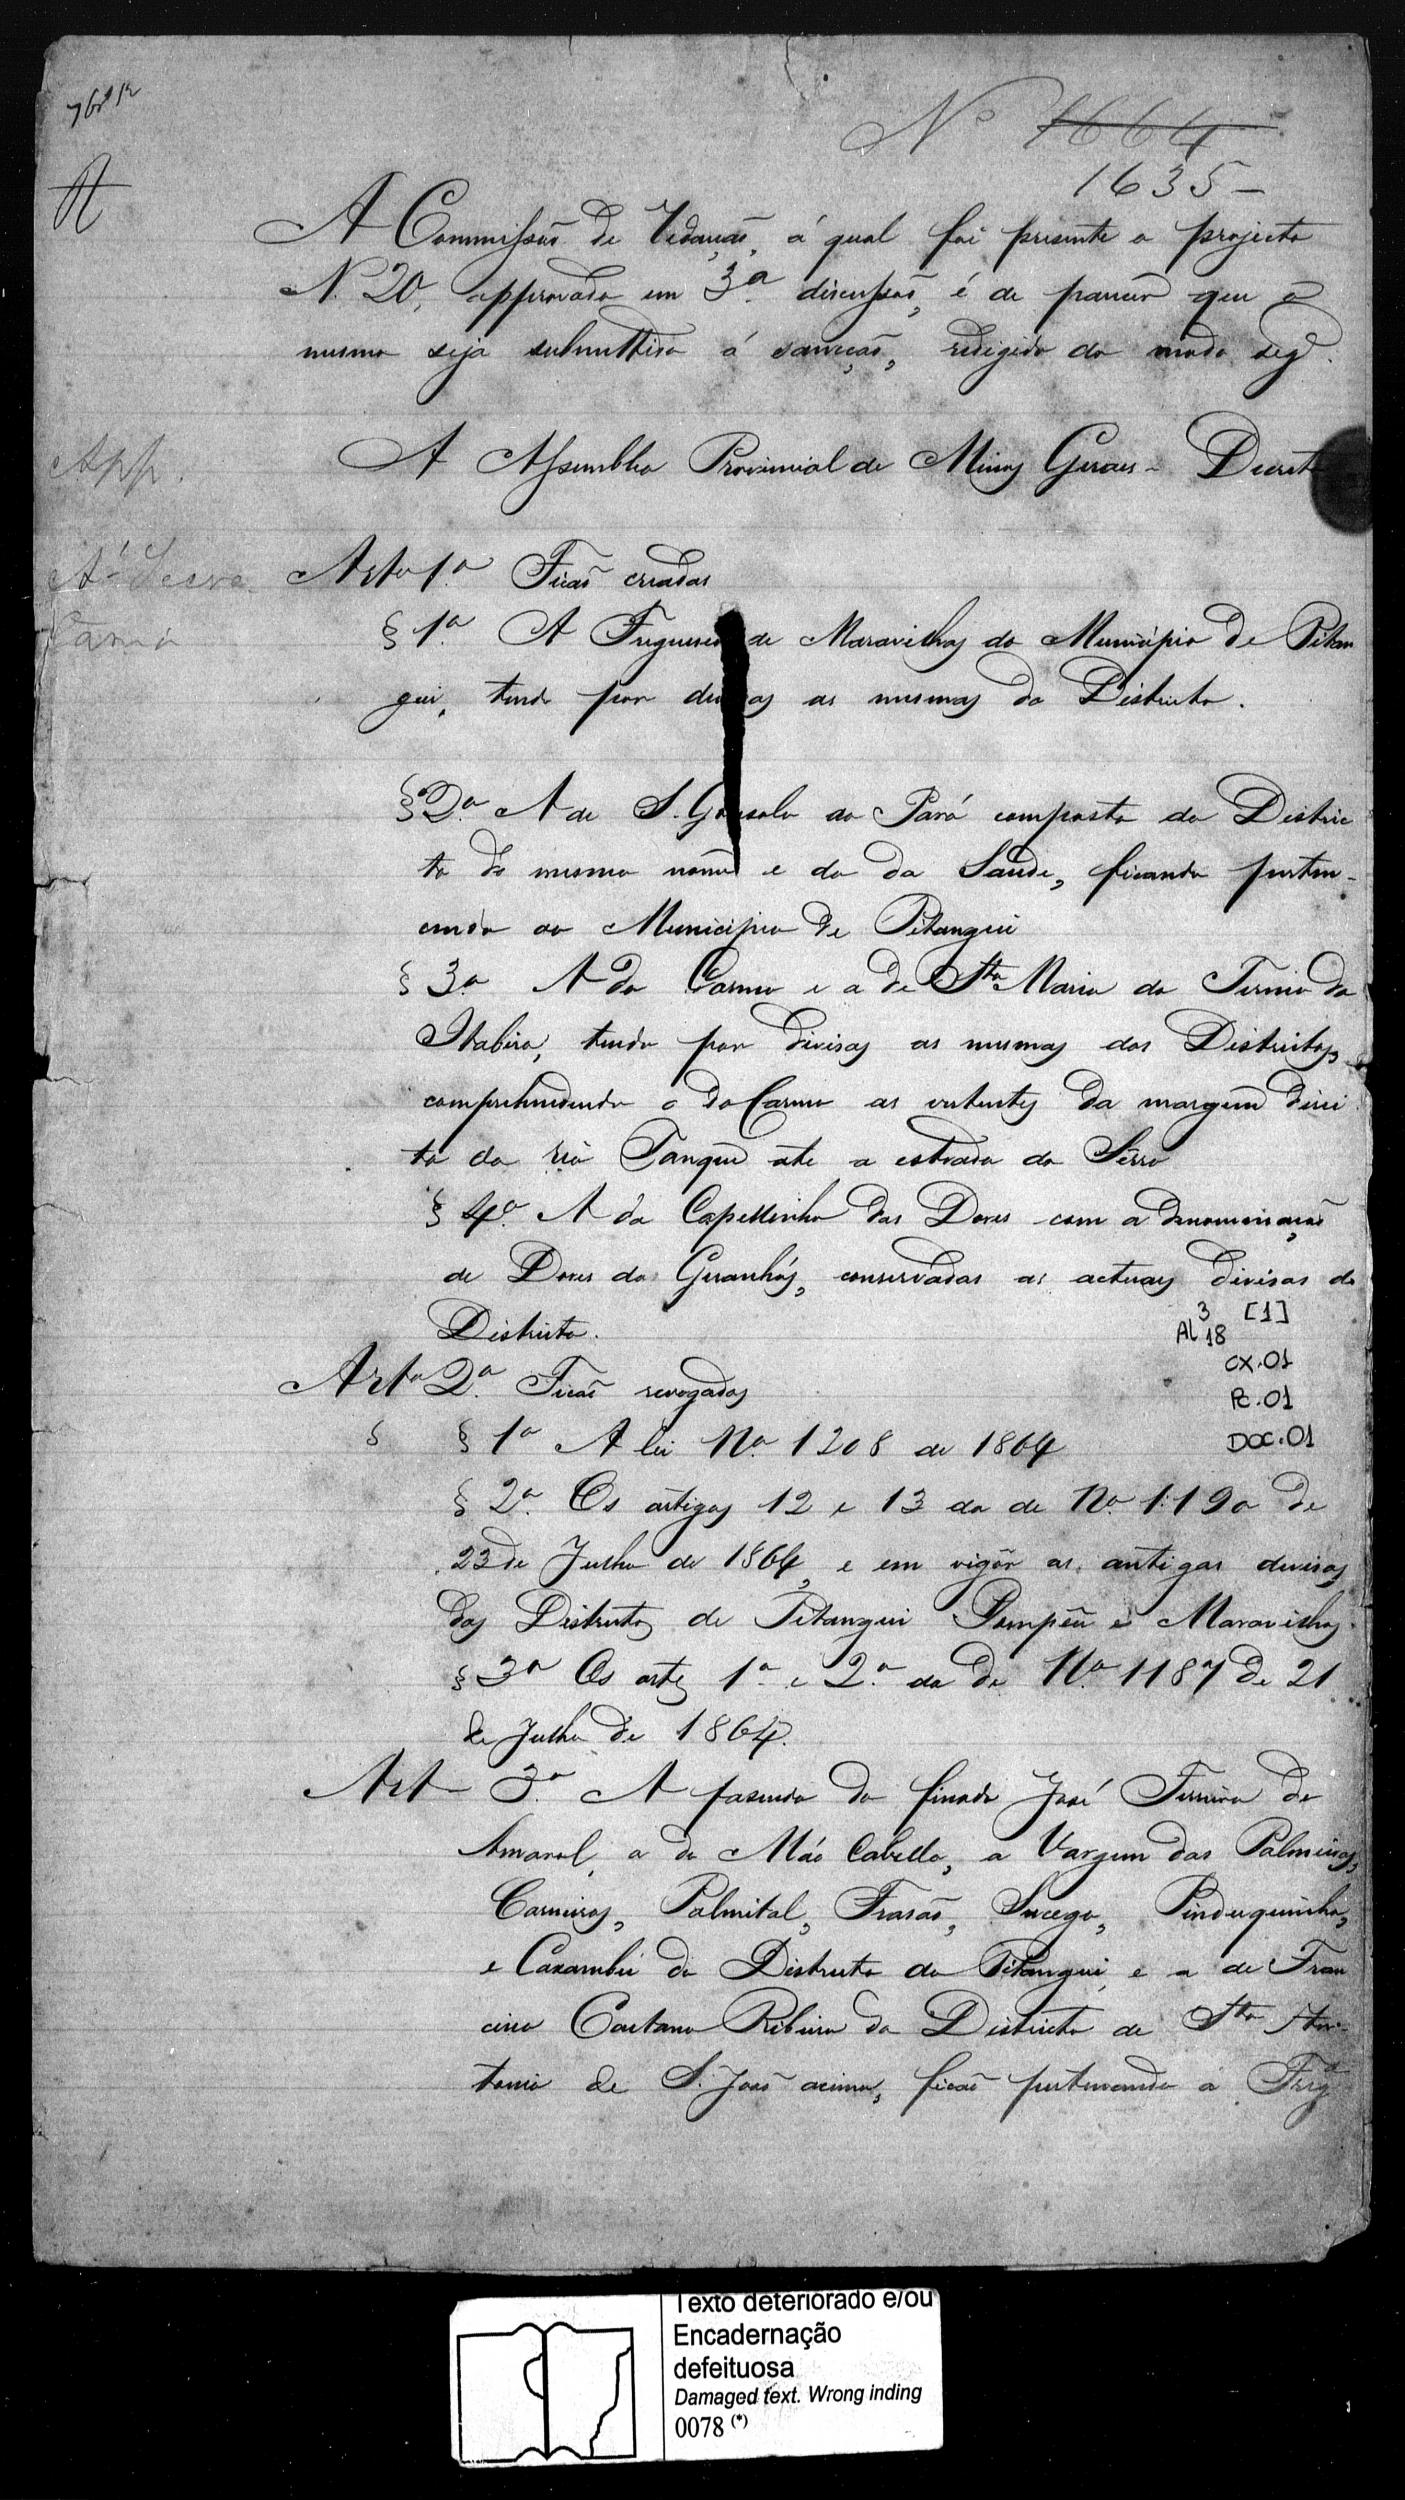 Nº 1664
1635-
A Commissão de Redacção, á qual foi presente o projecto
N. 20, approvado em 3ª discussão, é de parecer que o
mesmo seja submettido á sancção, redigido do modo segº.
App.
A Assemblea Provincial de Minas Geraes - Decreta
Arto 1º Ficão creadas
§ 1º A Freguesia de Maravilhas do Municipio de Pitan
gui, tendo por divisas as mesmas do Districto.
§ 2º A de S. Gonsalo do Pará composta do Distric
to do mesmo nome e do da Saude, ficando perten-
cendo ao Municipio de Pitangui
§ 3º A do Carmo e a de Sta Maria do Termo da
Itabira, tendo por divisas as mesmas dos Districtos,
comprehendendo o do Carmo as vertentes da margem direi
ta do rio Tanque até a estrada do Serro
§ 4º A da Capellinha das Dores com a denominação
de Dores do Guanhãs, conservadas as actuaes divisas do
Districto.
3 [1]
AL 18
CX.01
PC.01
DOC.01
Arto 2º Ficão revogados
§ § 1º A lei Nº 1208 de 1864
§ 2º Os artigos 12 e 13 da de Nº 1190 de
23 de Julho de 1864, e em vigôr as antigas divisas
dos Districtos de Pitangui Pompêu e Maravilhas.
§ 3º Os artes 1º e 2º da de Nº 1187 de 21
de Julho de 1864.
Art 3º A fasenda do finado José Ferreira de
Amaral, a do Mão Cabello, a Vargem das Palmeiras,
Carneiros, Palmital, Frasão, Sucego, Pinduquinha,
e Caxambú do Districto do Pitangui, e a de Fran
cisco Caetano Ribeiro do Districto de Sto An-
tonio de S. João acima, ficão pertencendo a Fregª
Texto deteriorado e/ou
Encadernação
defeituosa
Damaged text. Wrong inding
0078 (*)